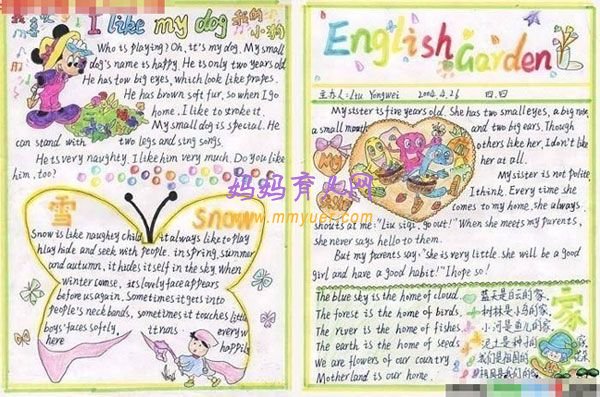 I like my dog 我的小狗
Who is playing? Oh, it's my dog. My small
dog's name is happy. He is only two years old
He has tow big eyes, which look like prapes.
He has brown soft fur, so when I go
home. I like to stroke it.
My small dog is special. He
can stand with two legs and sing songs.
He is very naughty. I like him very much. Do you like
him, too?
雪 Snow
Snow is like naughty child, it always like to play
hlay hide and seek with people. in spring, summer
and autumn, it hides itself in the sky. When
winter comse, its lovely face appears
before us again. Sometimes it gets into
people's neck bands, sometimes it touches little
boys' faces softly, it trans everyw
here happily
English Garden
主办人: Liu Yongwei 2004.4.26 四.四
My sister is five years old. She has two small eyes, a big nose,
a small mouth and two big ears. Though
others like her, I don't like
her at all.
My sister is not polite,
I think. Every time she
comes to my home, she always
shouts at me: "Liu siqi, go out!" When she meets my parents,
she never says hello to them.
But my parents say: "she is very little. she will be a good
girl and have a good habit!" I hope so!
The blue sky is the home of cloud. 蓝天是白云的家.
The forest is the home of birds. 树林是小鸟的家.
The river is the home of fishes. 小河是鱼儿的家.
The earth is the home of seeds. 泥土是种子的家.
We are flowers of our country. 我们是祖国的花朵
Motherland is our home. 祖国是我们的家.
家
妈妈育儿网
www.mmyuer.com